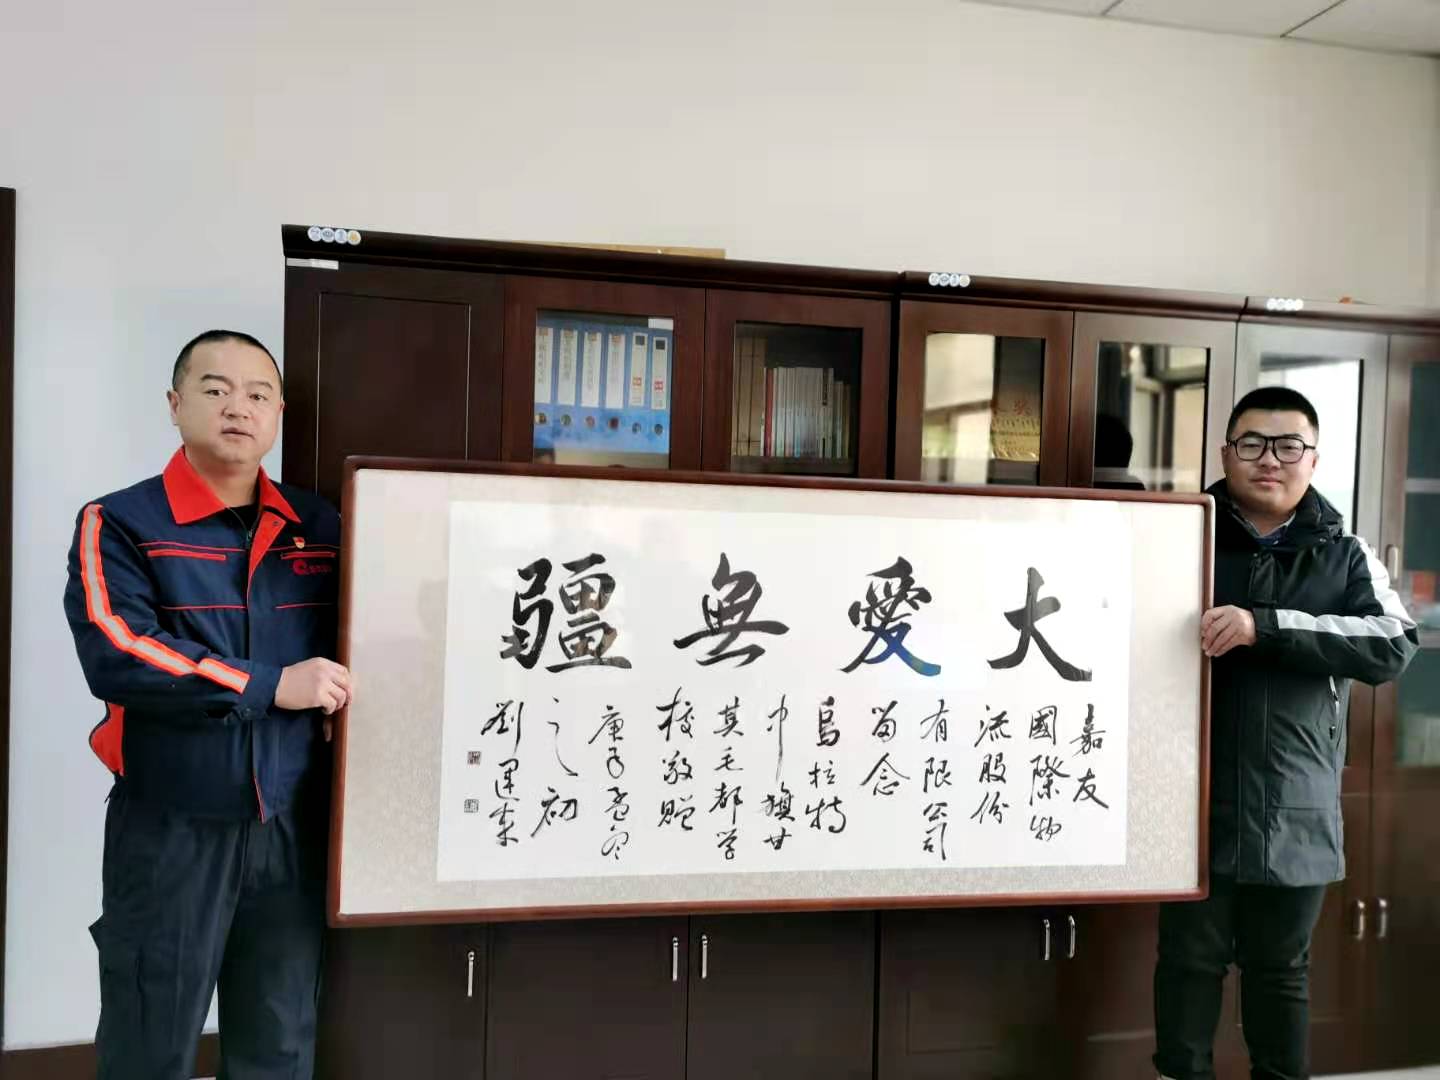 大愛無疆
嘉友
國際物
流股份
有限公司
留念
烏拉特
中旗甘
其毛都学
校敬赠
庚子孟冬
之初
劉運來